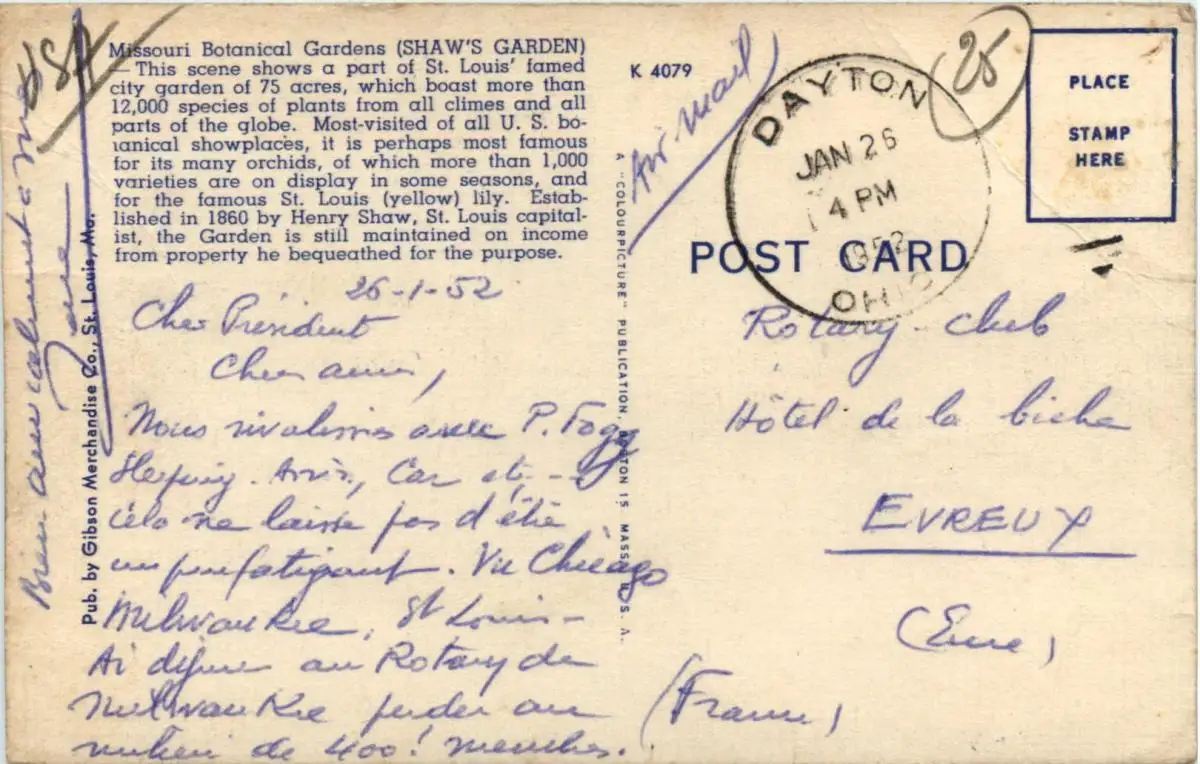 Missouri Botanical Gardens (SHAW'S GARDEN)
— This scene shows a part of St. Louis' famed
city garden of 75 acres, which boast more than
12,000 species of plants from all climes and all
parts of the globe. Most-visited of all U. S. bo-
tanical showplaces, it is perhaps most famous
for its many orchids, of which more than 1,000
varieties are on display in some seasons, and
for the famous St. Louis (yellow) lily. Estab-
lished in 1860 by Henry Shaw, St. Louis capital-
ist, the Garden is still maintained on income
from property he bequeathed for the purpose.
26-1-52
Cher Président
Cher ami,
Nous rivalisons avec P. Fogg
Sleeping. Avion, Car etc, --
cela ne laisse pas d'être
un peu fatigant. Vu Chicago
Milwaukee, St Louis -
Ai déjeuné au Rotary de
Milwaukee perdu au
milieu de 400! membres.
Bien amicalement à
USA
Pub. by Gibson Merchandise Co., St. Louis, Mo.
A "COLOURPICTURE" PUBLICATION, BOSTON 15, MASS., U. S. A.
K 4079
Air Mail
DAYTON
JAN 26
4 PM
1952
OHIO
25
PLACE
STAMP
HERE
POST CARD
Rotary-club
Hôtel de la biche
EVREUX
(Eure)
(France)